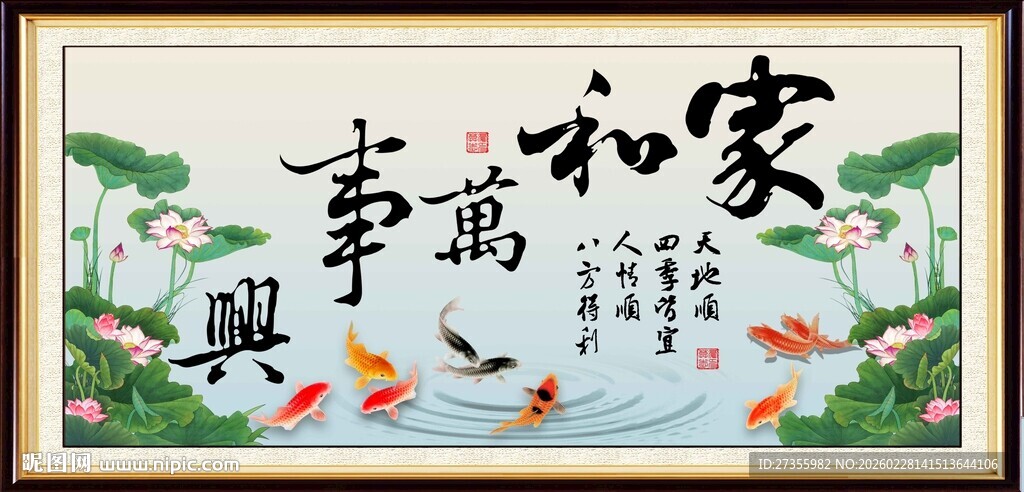 家和萬事興
天地順
四季皆宜
人情順
八方得利
昵图网 www.nipic.com
ID:27355982 NO:20260228141513644106